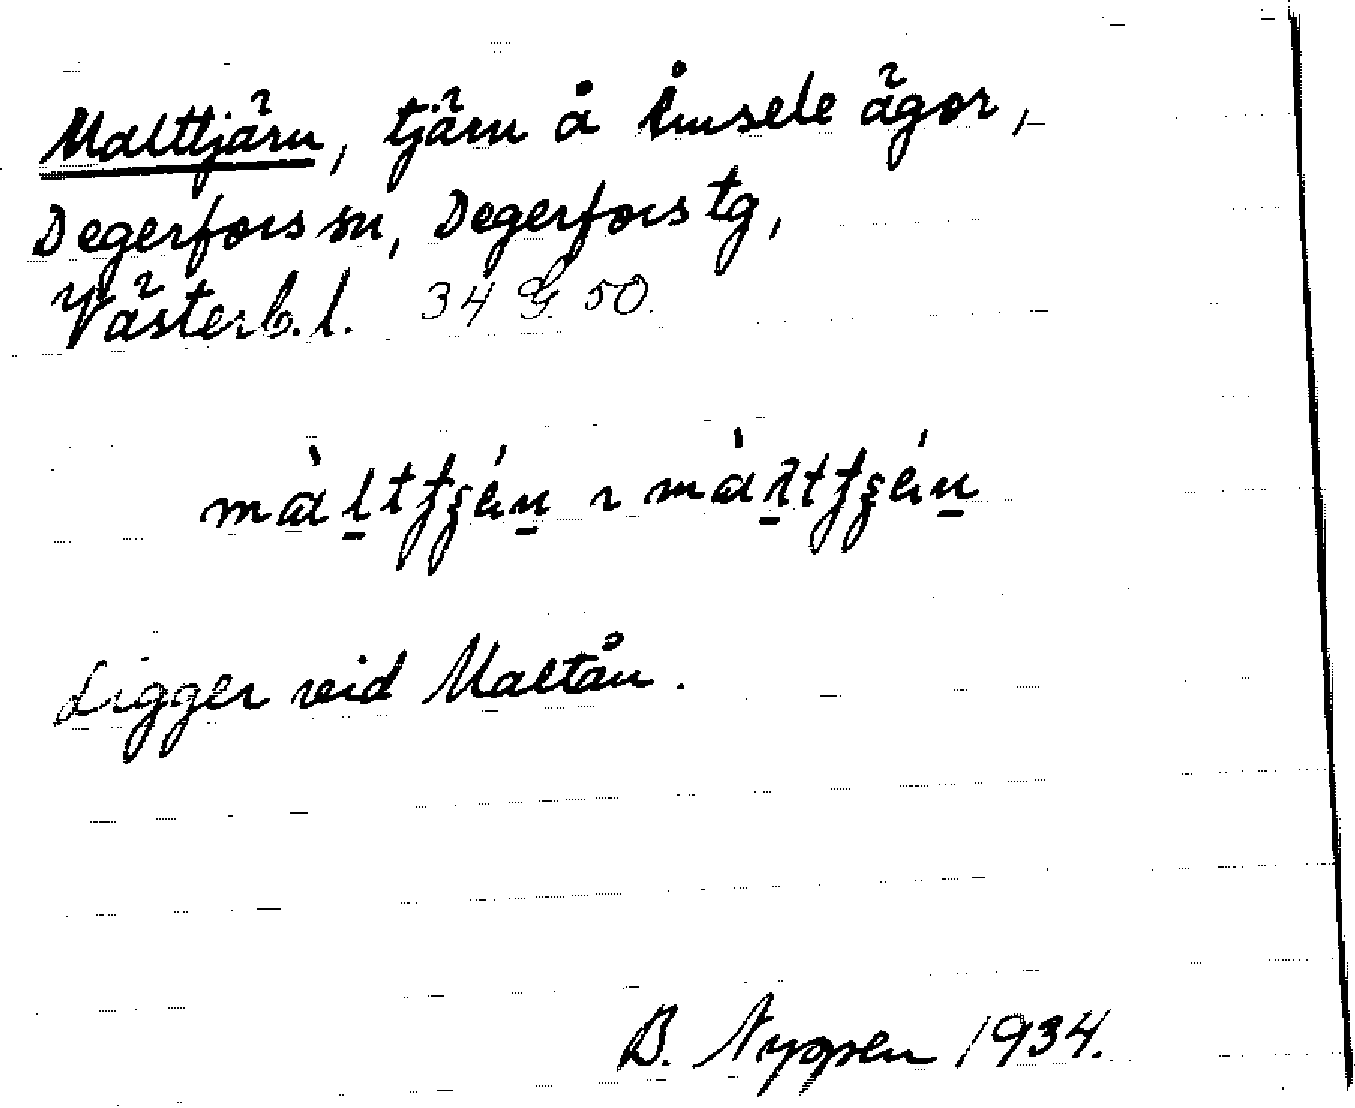 Malttjärn, tjärn å Åmsele ägor,
Degerfors sn, Degerfors tg,
Västerb. l. 34 G. 50.
Ligger vid Maltån.
B. Nyggen 1934.